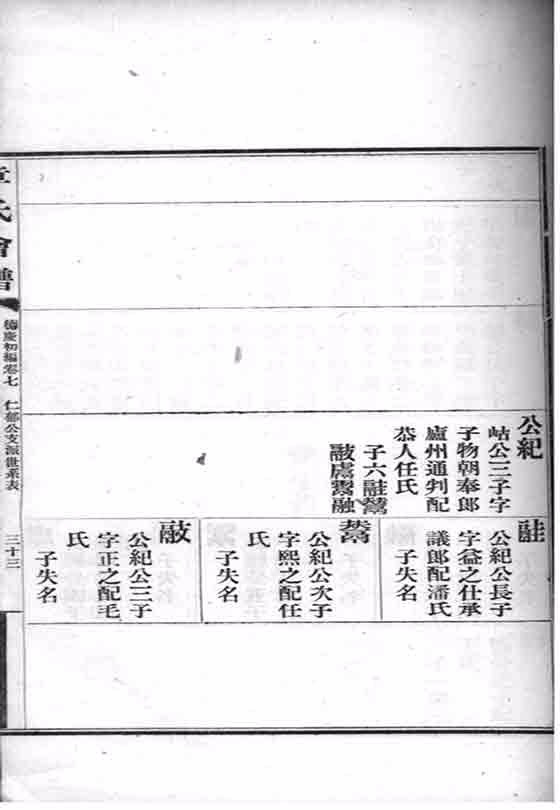 公紀
岵公三子字
子物朝奉郎
廬州通判配
恭人任氏
子六
融
公紀公長子
字益之仕承
議郎配潘氏
子失名
公紀公次子
字熙之配任
氏
子失名
公紀公三子
字正之配毛
氏
子失名
章氏會譜
德慶初編卷七
仁郁公支派世系表
三十三